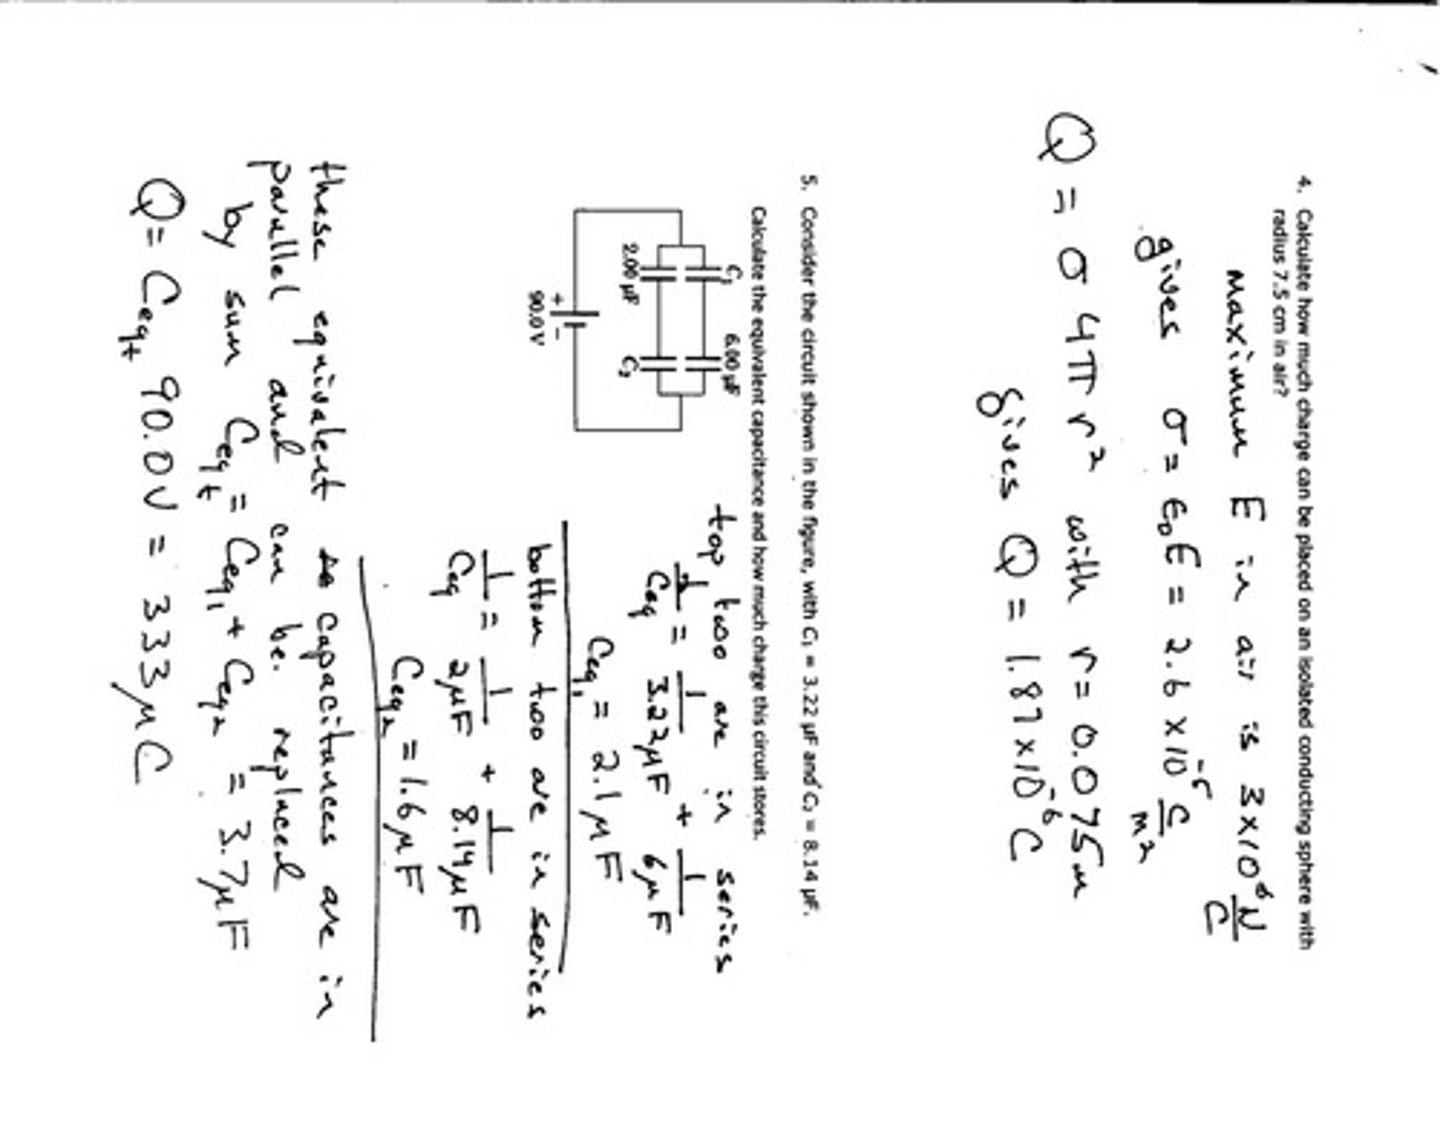 4. Calculate how much charge can be placed on an isolated conducting sphere with
radius 7.5 cm in air?
maximum E in air is 3×10⁶ N/C
gives σ = ε₀E = 2.6 ×10⁻⁵ C/m²
Q = σ 4π r² with r = 0.075m
gives Q = 1.87 ×10⁻⁶ C
5. Consider the circuit shown in the figure, with C₁ = 3.22 µF and C₂ = 8.14 µF.
Calculate the equivalent capacitance and how much charge this circuit stores.
C₁ 6.00 µF
2.00 µF C₂
+ −
90.0 V
top two are in series
1/Ceq = 1/3.22µF + 1/6µF
Ceq₁ = 2.1 µF
bottom two are in series
1/Ceq = 1/2µF + 1/8.14µF
Ceq₂ = 1.6 µF
these equivalent capacitances are in
parallel and can be replaced
by sum Ceqt = Ceq₁ + Ceq₂ = 3.7µF
Q = Ceqt 90.0V = 333µC